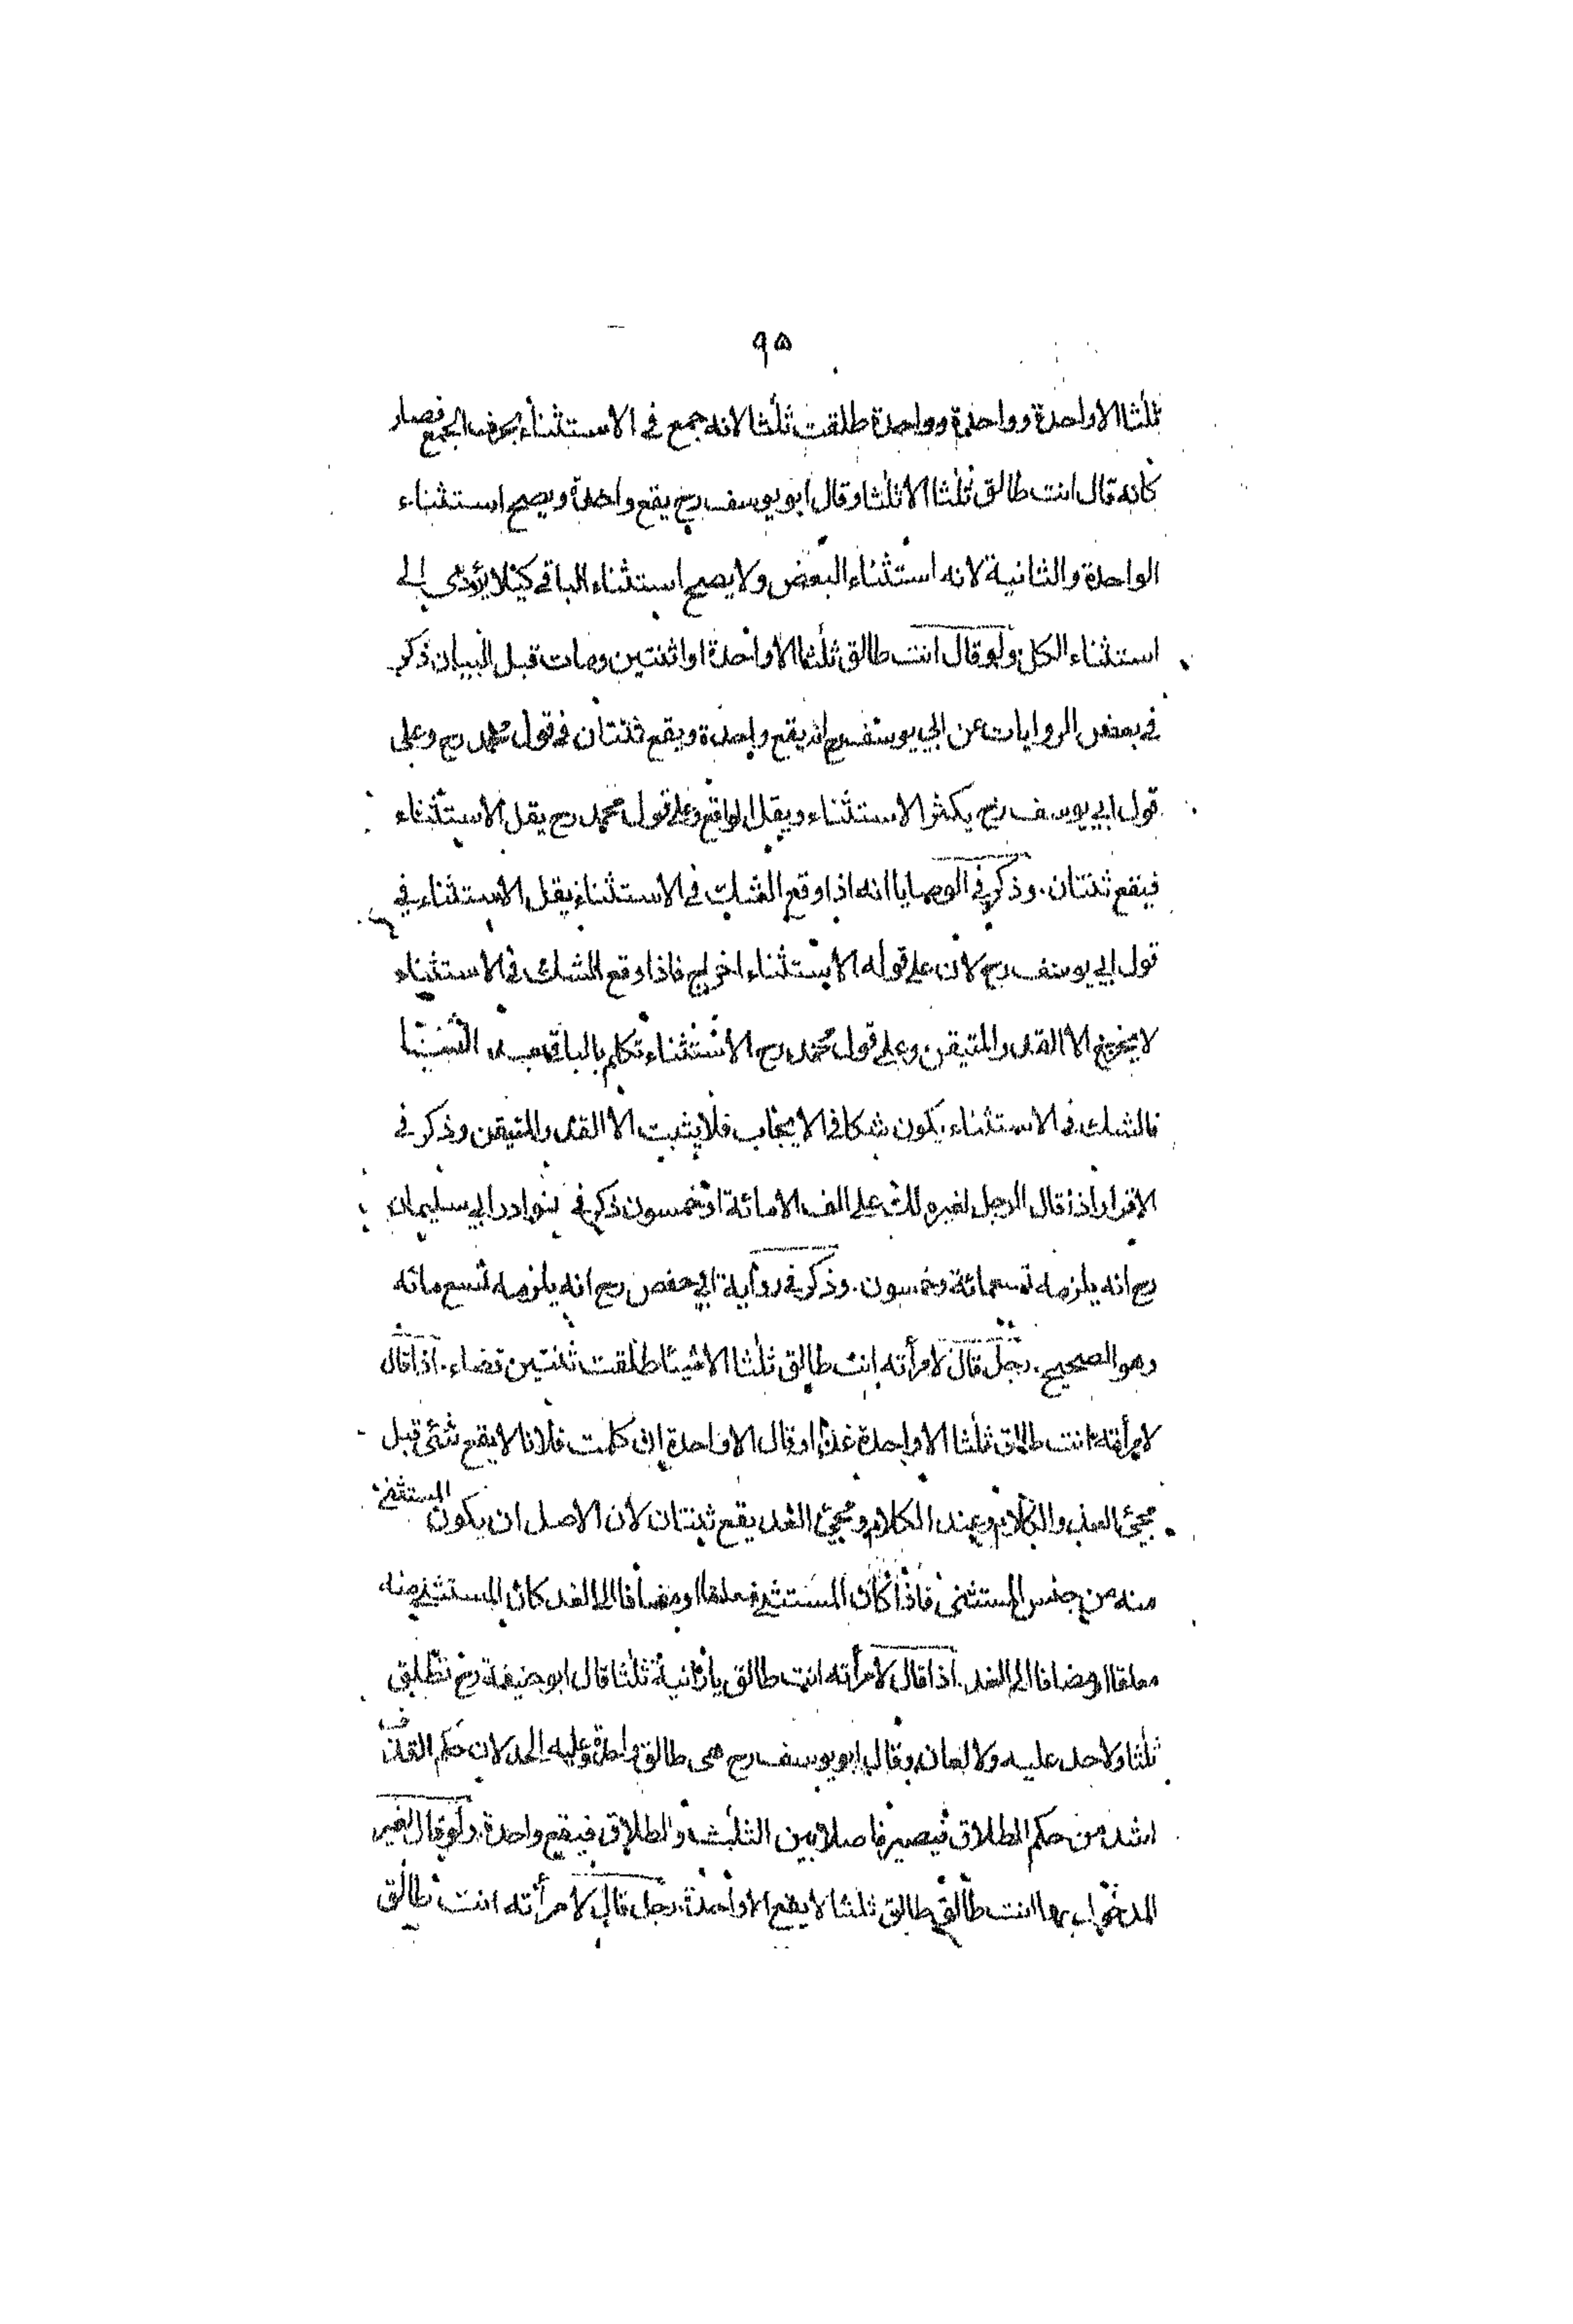 ٩٥
ثلثا الا واحدة وواحدة وواحدة طلقت ثلثا لانه جمع فى الاستثناء بحرف الجمع فصار
كانه قال انت طالق ثلثا الا ثلثا وقال ابو يوسف رح يقع واحدة ويصح استثناء
الواحدة والثانية لانه استثناء البعض ولا يصح استثناء الباقى كيلا يؤدى الى
استثناء الكل ولو قال انت طالق ثلثا الا واحدة او اثنتين ومات قبل البيان ذكر
فى بعض الروايات عن ابى يوسف رح انه يقع واحدة ويقع ثنتان فى قول محمد رح وعلى
قول ابى يوسف رح يكثر الاستثناء ويقل الواقع وعلى قول محمد رح يقل الاستثناء
فيقع ثنتان. وذكر فى الوصايا انه اذا وقع الشك فى الاستثناء يقل الاستثناء فى
قول ابى يوسف رح لان على قوله الاستثناء اخراج فاذا وقع الشك فى الاستثناء
لا يخرج الا القدر المتيقن وعلى قول محمد رح الاستثناء تكلم بالباقى بعد الثنيا
فالشك فى الاستثناء يكون شكا فى الايجاب فلا يثبت الا القدر المتيقن وذكر فى
الاقرار اذا قال الرجل لغيره لك على الف الا مائة او خمسون ذكر فى نوادر ابى سليمان
رح انه يلزمه تسعمائة وخمسون. وذكر فى رواية ابى حفص رح انه يلزمه تسع مائه
وهو الصحيح. رجل قال لامرأته انت طالق ثلثا الا شيئا طلقت ثنتين قضاء. اذا قال
لامرأته انت طالق ثلثا الا واحدة غدا او قال الا واحدة ان كلمت فلانا لا يقع شئ قبل
مجئ الغد والكلام وعند الكلام ومجئ الغد يقع ثنتان لان الاصل ان يكون المستثنى
منه من جنس المستثنى فاذا كان المستثنى معلقا او مضافا الى الغد كان المستثنى منه
معلقا او مضافا الى الغد. اذا قال لامرأته انت طالق يا زانية ثلثا قال ابو حنيفة رح تطلق
ثلثا ولا حد عليه ولا لعان وقال ابو يوسف رح هى طالق واحدة وعليه الحد لان حكم القذف
اشد من حكم الطلاق فيصير فاصلا بين الثلث والطلاق فيقع واحدة. ولو قال لغير
المدخول بها انت طالق طالق ثلثا لا يقع الا واحدة. رجل قال لامرأته انت طالق